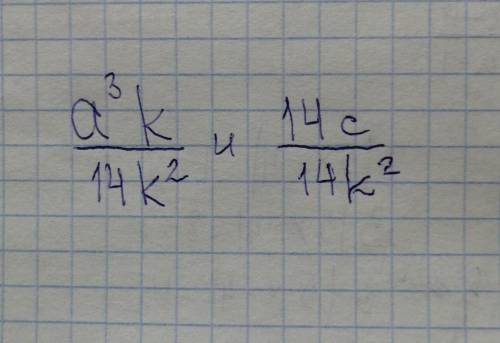 a³k/14k² и 14c/14k²